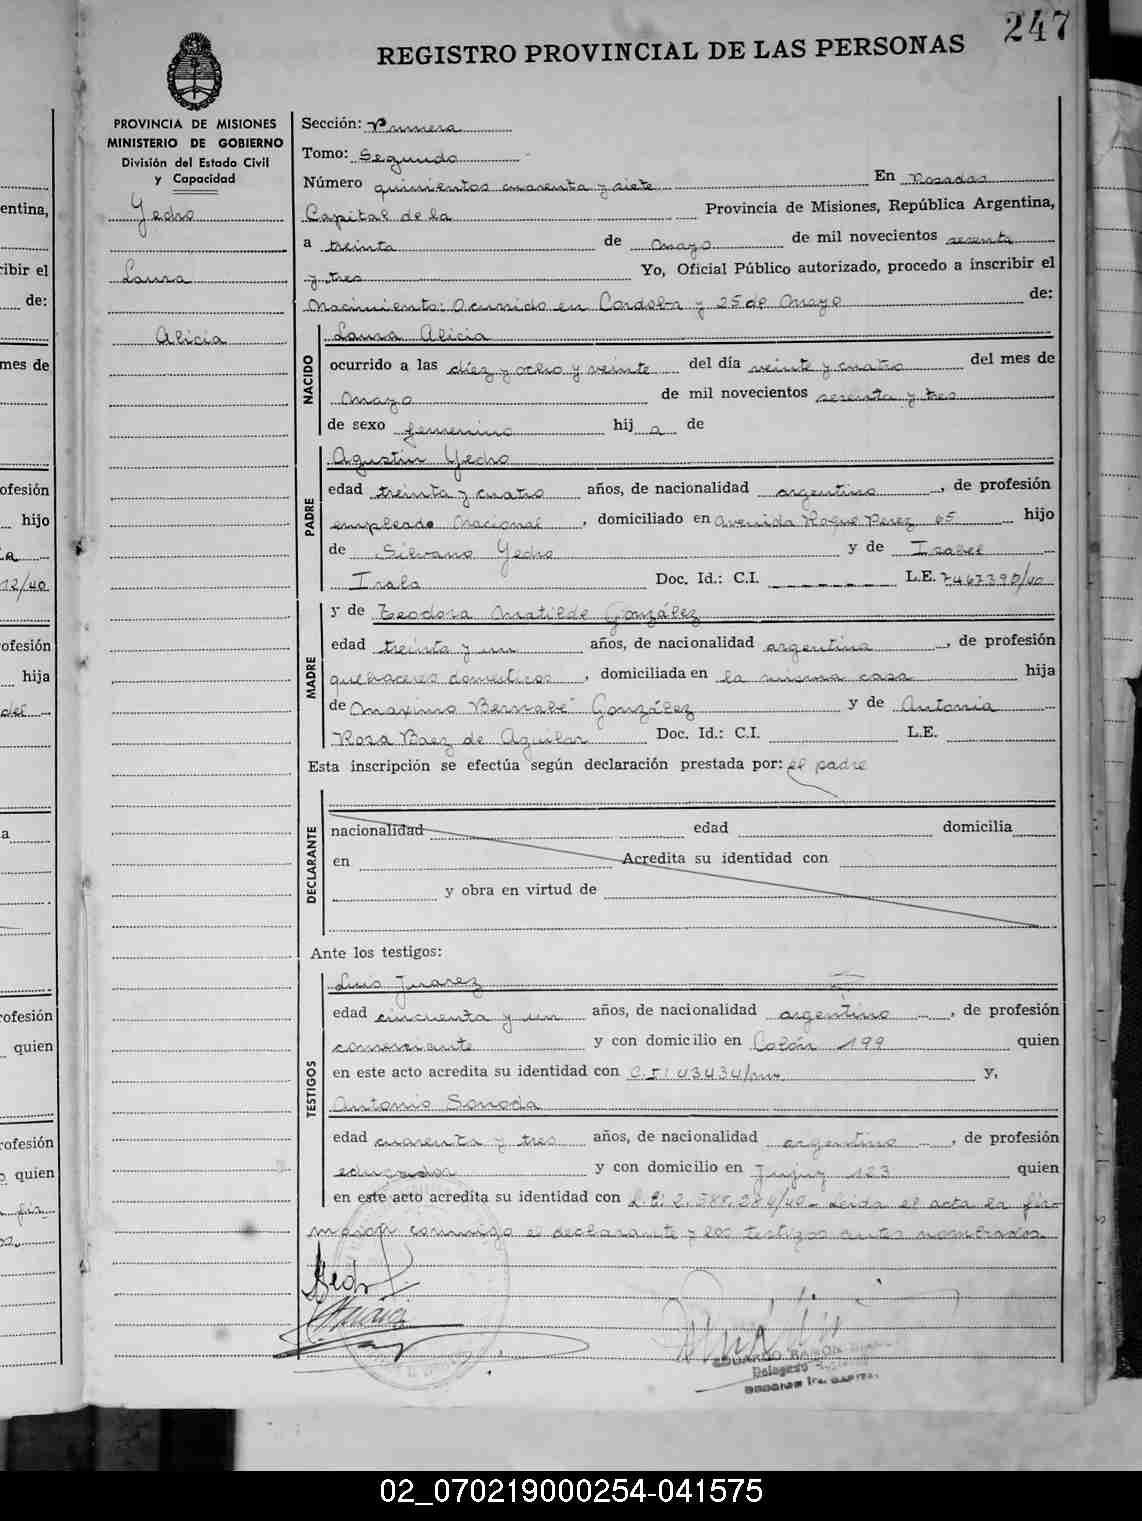 247
REGISTRO PROVINCIAL DE LAS PERSONAS
PROVINCIA DE MISIONES
MINISTERIO DE GOBIERNO
División del Estado Civil
y Capacidad
Yedro
Laura
Alicia
Sección: Primera
Tomo: Segundo
Número quinientos cuarenta y siete En Posadas
Capital de la Provincia de Misiones, República Argentina,
a treinta de mayo de mil novecientos sesenta
y tres Yo, Oficial Público autorizado, procedo a inscribir el
Nacimiento: Ocurrido en Cordoba y 25 de Mayo de:
NACIDO
Laura Alicia
ocurrido a las diez y ocho y veinte del día veinte y cuatro del mes de
Mayo de mil novecientos sesenta y tres
de sexo femenino hij a de
PADRE
Agustin Yedro
edad treinta y cuatro años, de nacionalidad argentino, de profesión
empleado Nacional, domiciliado en Avenida Roque Perez 65 hijo
de Silvano Yedro y de Isabel
Irala Doc. Id.: C.I. L.E.
MADRE
y de Teodora Matilde González
edad treinta y un años, de nacionalidad argentina, de profesión
quehaceres domesticos, domiciliada en la misma casa hija
de Maximo Bernabé González y de Antonia
Rosa Baez de Aguilar Doc. Id.: C.I. L.E.
Esta inscripción se efectúa según declaración prestada por: el padre
DECLARANTE
nacionalidad edad domicilia
en Acredita su identidad con
y obra en virtud de
Ante los testigos:
TESTIGOS
Luis Juarez
edad cincuenta y un años, de nacionalidad argentino, de profesión
comerciante y con domicilio en Colón 199 quien
en este acto acredita su identidad con C.I: 43434/ y,
Antonio Sonoda
edad cuarenta y tres años, de nacionalidad argentino, de profesión
educador y con domicilio en Jujuy 123 quien
en este acto acredita su identidad con L.E: Leida el acta la fir-
maron conmigo el declarante y los testigos antes nombrados
Yedro
EDUARDO RAMON
Delegado
02_070219000254-041575